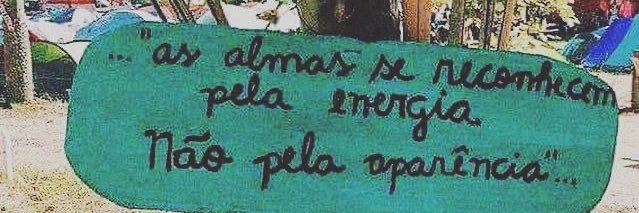 ..."as almas se reconhecem
pela energia.
Não pela aparência"...